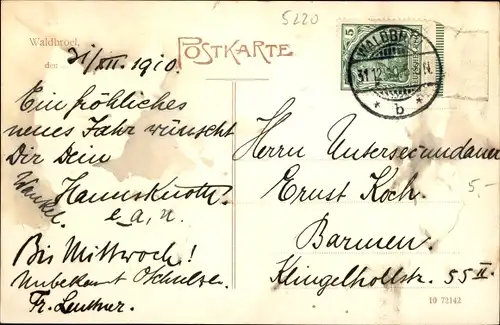 5220
Waldbroel,
POSTKARTE
den 31/XII. 1910.
5
WALDBRÖL
31.12.10
* b *
Ein fröhliches
neues Jahr wünscht
Dir Dein
e. a. n.
Bis Mittwoch!
Unbekannt
Fr. Leuthner.
Herrn Untersecundaner
Ernst Koch.
Barmen.
Klingelhollstr. 55 II.
5.-
10 72142